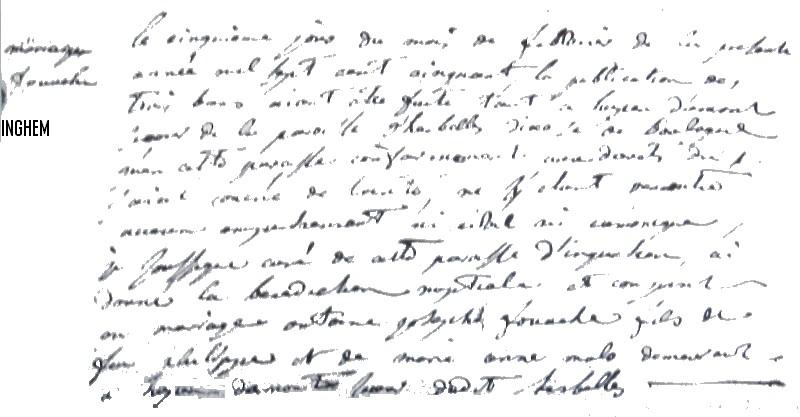 mariage
fouache
INGHEM
le cinquieme jour du mois de fevrier de la presente
année mil sept cent cinquante la publication de,
trois bans aiant étée faite tant a
de la paroisse d'herbelles diocese de Boulogne
en cette paroisse conformement aux decrets du
saint concile de trente, ne s'y etant rencontré
aucun empechement ni civil ni canonique,
je soussigne curé de cette paroisse d'inguehem, ai
donné la benediction nuptiale et conjoint
en mariage antoine joseph fouache fils de
feu philippe et de marie anne malo demeurant
a dudit herbelles